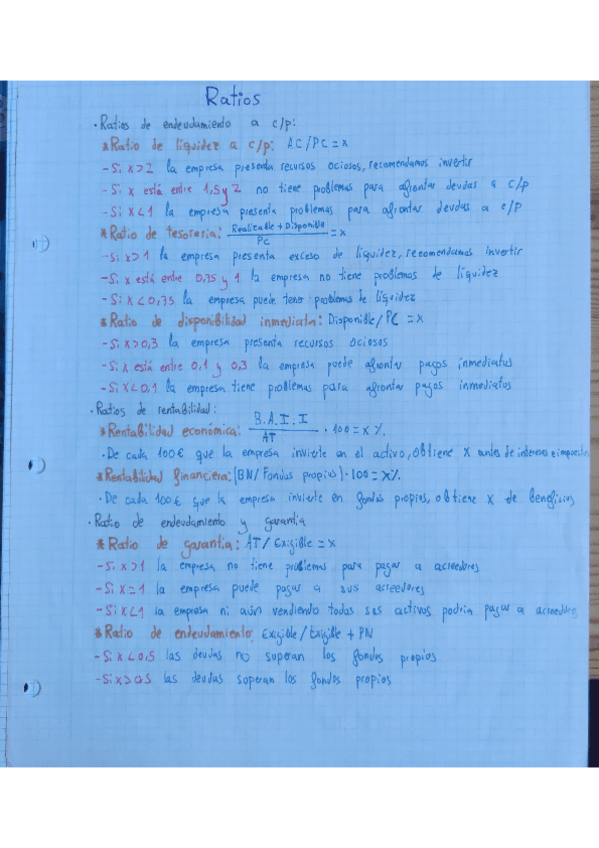 Ratios
· Ratios de endeudamiento a c/p:
* Ratio de liquidez a c/p: AC/PC = x
- Si x>2 la empresa presenta recursos ociosos, recomendamos invertir
- Si x está entre 1,5 y 2 no tiene problemas para afrontar deudas a c/p
- Si x<1 la empresa presenta problemas para afrontar deudas a c/p
* Ratio de tesorería: Realizable + Disponible / PC = x
- Si x>1 la empresa presenta exceso de liquidez, recomendamos invertir
- Si x está entre 0,75 y 1 la empresa no tiene problemas de liquidez
- Si x<0,75 la empresa puede tener problemas de liquidez
* Ratio de disponibilidad inmediata: Disponible/PC = x
- Si x>0,3 la empresa presenta recursos ociosos
- Si x está entre 0,1 y 0,3 la empresa puede afrontar pagos inmediatos
- Si x<0,1 la empresa tiene problemas para afrontar pagos inmediatos
· Ratios de rentabilidad:
* Rentabilidad económica: B.A.I.I / AT · 100 = x %
· De cada 100€ que la empresa invierte en el activo, obtiene x antes de intereses e impuestos
* Rentabilidad financiera: (BN/Fondos propios) · 100 = x%
· De cada 100€ que la empresa invierte en fondos propios, obtiene x de beneficios
· Ratio de endeudamiento y garantía
* Ratio de garantía: AT/Exigible = x
- Si x>1 la empresa no tiene problemas para pagar a acreedores
- Si x=1 la empresa puede pagar a sus acreedores
- Si x<1 la empresa ni aún vendiendo todos sus activos podría pagar a acreedores
* Ratio de endeudamiento: Exigible/Exigible + PN
- Si x<0,5 las deudas no superan los fondos propios
- Si x>0,5 las deudas superan los fondos propios